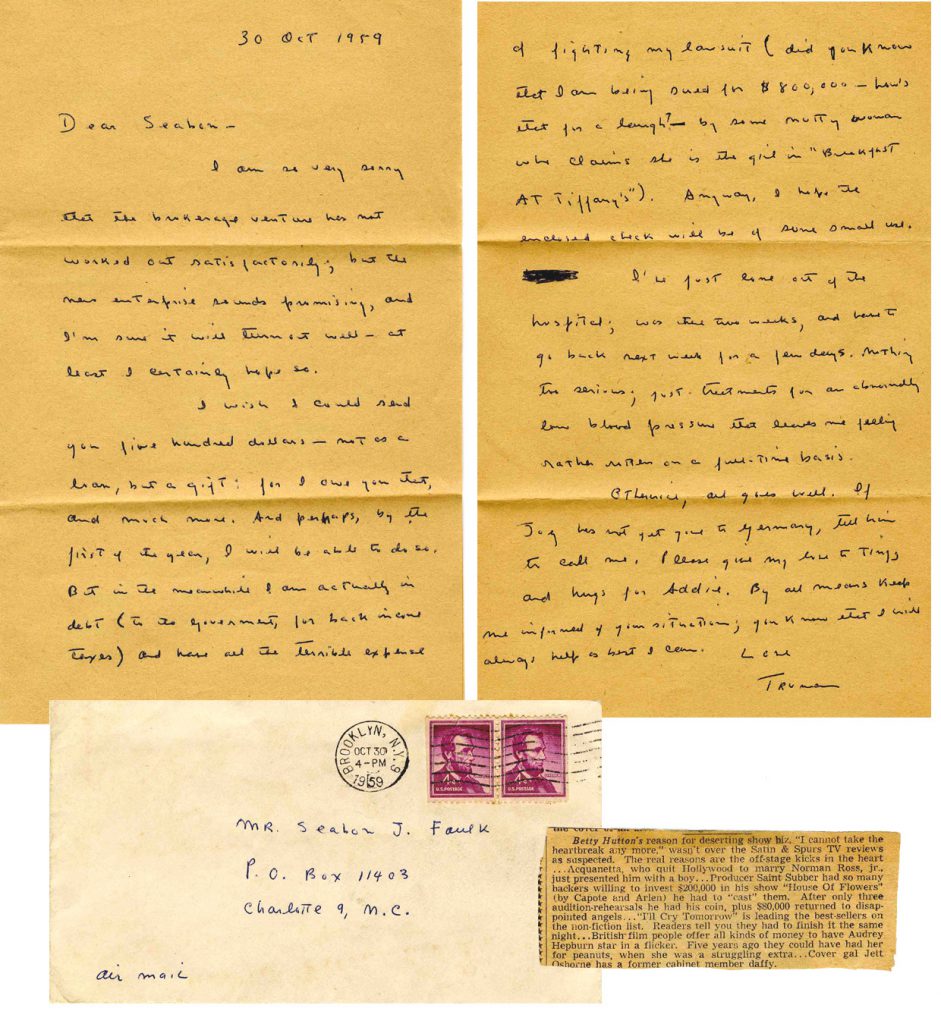 30 Oct 1959
Dear Seabon—
I am so very sorry
that the brokerage venture has not
worked out satisfactorily; but the
new enterprise sounds promising, and
I'm sure it will turn out well — at
least I certainly hope so.
I wish I could send
you five hundred dollars — not as a
loan, but a gift: for I owe you that,
and much more. And perhaps, by the
first of the year, I will be able to do so.
But in the meanwhile I am actually in
debt (to the Goverment, for back income
taxes) and have all the terrible expense
of fighting my lawsuit (did you know
that I am being sued for $800,000 — how's
that for a laugh? — by some nutty woman
who claims she is the girl in "Breakfast
AT Tiffany's"). Anyway, I hope the
enclosed check will be of some small use.
I've just come out of the
hospital; was there two weeks, and have to
go back next week for a few days. Nothing
too serious; just treatments for an abnormally
low blood pressure that leaves me feeling
rather rotten on a full-time basis.
Otherwise, all goes well. If
Joey has not yet gone to Germany, tell him
to call me. Please give my love to Tiny
and hugs for Addie. By all means keep
me informed of your situation; you know that I will
always help as best I can. Love
Truman
BROOKLYN, N.Y. 9
OCT 30
4-PM
1959
U.S. POSTAGE
U.S. POSTAGE
MR. Seabon J. Faulk
P.O. Box 11403
Charlotte 9, N.C.
air mail
Betty Hutton's reason for deserting show biz, "I cannot take the
heartbreak any more," wasn't over the Satin & Spurs TV reviews
as suspected. The real reasons are the off-stage kicks in the heart
...Acquanetta, who quit Hollywood to marry Norman Ross, jr.,
just presented him with a boy...Producer Saint Subber had so many
backers willing to invest $200,000 in his show "House Of Flowers"
(by Capote and Arlen) he had to "cast" them. After only three
audition-rehearsals he had his coin, plus $80,000 returned to disap-
pointed angels..."I'll Cry Tomorrow" is leading the best-sellers on
the non-fiction list. Readers tell you they had to finish it the same
night...British film people offer all kinds of money to have Audrey
Hepburn star in a flicker. Five years ago they could have had her
for peanuts, when she was a struggling extra...Cover gal Jett
Osborne has a former cabinet member daffy.